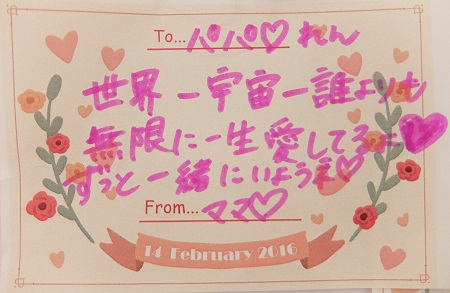 To... パパ♡れん
世界一宇宙一誰よりも
無限に一生愛してるよ♡
ずっと一緒にいようえ♡
From... ママ♡
14 February 2016